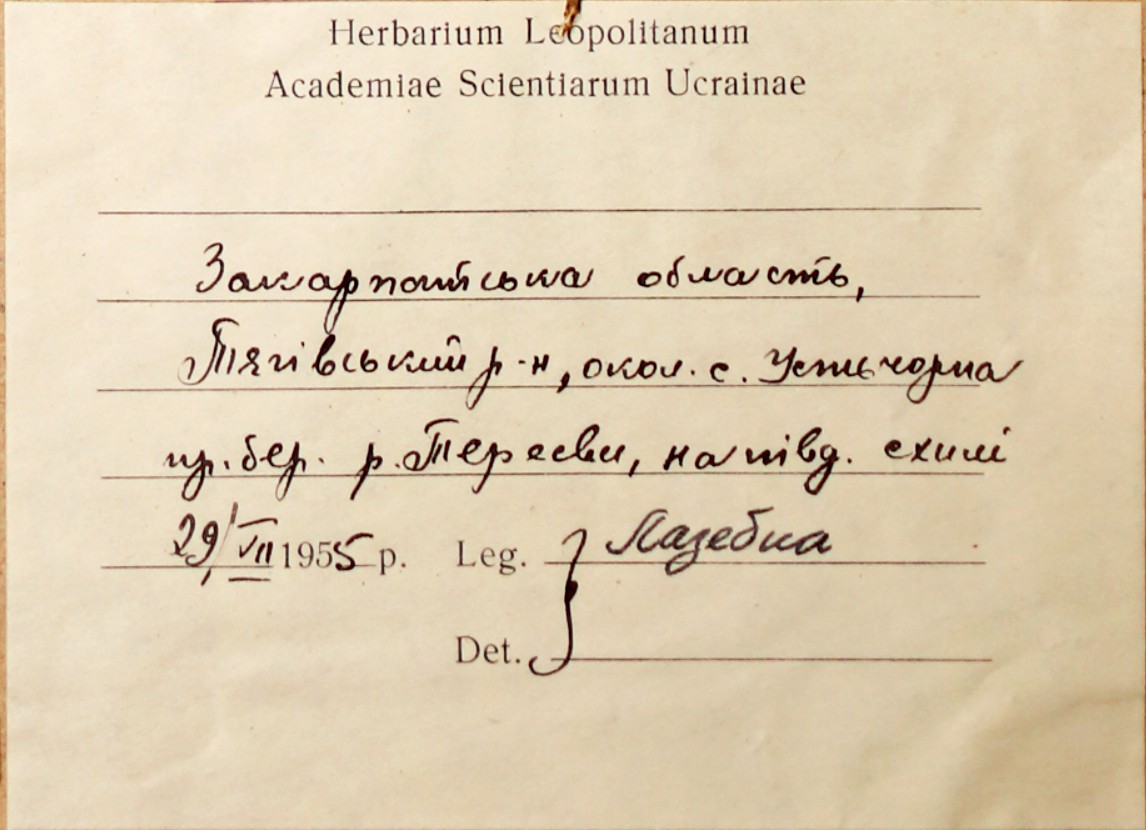 Herbarium Leopolitanum
Academiae Scientiarum Ucrainae
Закарпатська область,
Тячівський р-н, окол. с. Устьчорна
пр. бер. р. Тересви, на півд. схилі
29/VII 1955 р. Leg. Лазебна
Det.